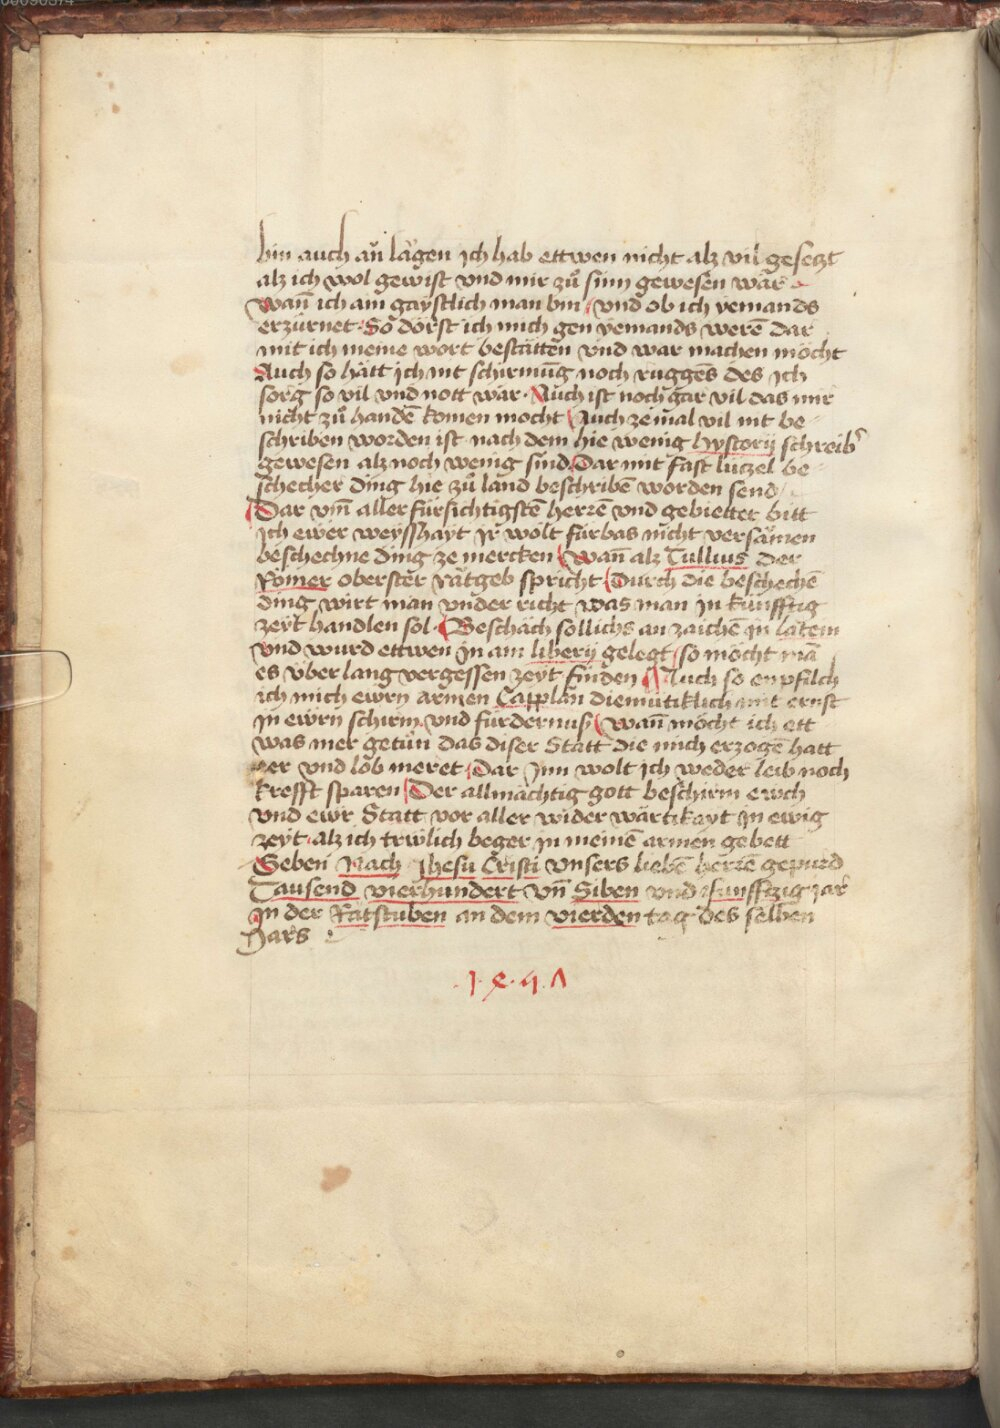 bin auch añ lägen ich hab ettwen nicht alz vil gesetzt
alz ich wol gewist vnd mir zů sinn gewesen wär
wañ ich ain gaystlich man bin vnd ob ich yemands
erzürnet So dörst ich mich gen yemands werē dar
mit ich meine wort bestätten vnd war machen möcht
Auch so hätt ich nit schirmūg noch ruggēs des ich
sorg so vil vnd nott wär Auch ist noch gar vil das mir
nicht zů handē komen mocht Auch zemal vil nit be
schriben worden ist nach dem hie wenig hystorij schreib
gewesen alz noch wenig sind Dar mit fast lützel be
schecher ding hie zů land beschribē worden send
Dar vm̄ aller fürsichtigstē herrē vnd gebietter bitt
ich ewer weysshayt Ir wölt fürbas nicht versamen
beschechne ding ze mercken wañ alz Tullius der
Römer oberster rätgeb spricht Durch die beschechē
ding wirt man vnder richt was man in künfftig
zeyt handlen sol Beschäch sollichs an zaichē in latein
vnd wurd ettwen in ain liberij gelegt so möcht mā
es über lang vergessen zeyt finden Auch so enpfilch
ich mich ewrn armen Capplän diemütiklich mit ernst
in ewrn schirm vnd fürdernuß wañ möcht ich ett
was mer getün das diser Statt die mich erzogē hatt
er vnd lob meret Dar Inn wolt ich weder leib noch
krefft sparen Der allmächtig gott beschirm ewch
vnd ewr Statt vor aller wider wärtikayt in ewig
zeyt alz ich trwlich beger in meinē armen gebett
Geben Nach Jhesu Cristi vnsers liebē herrē gepurd
Tausend vierhundert vn̄ Siben vnd fünfftzig jar
in der Ratstuben an dem vierden tag des selben
Jars
1·4·5·7